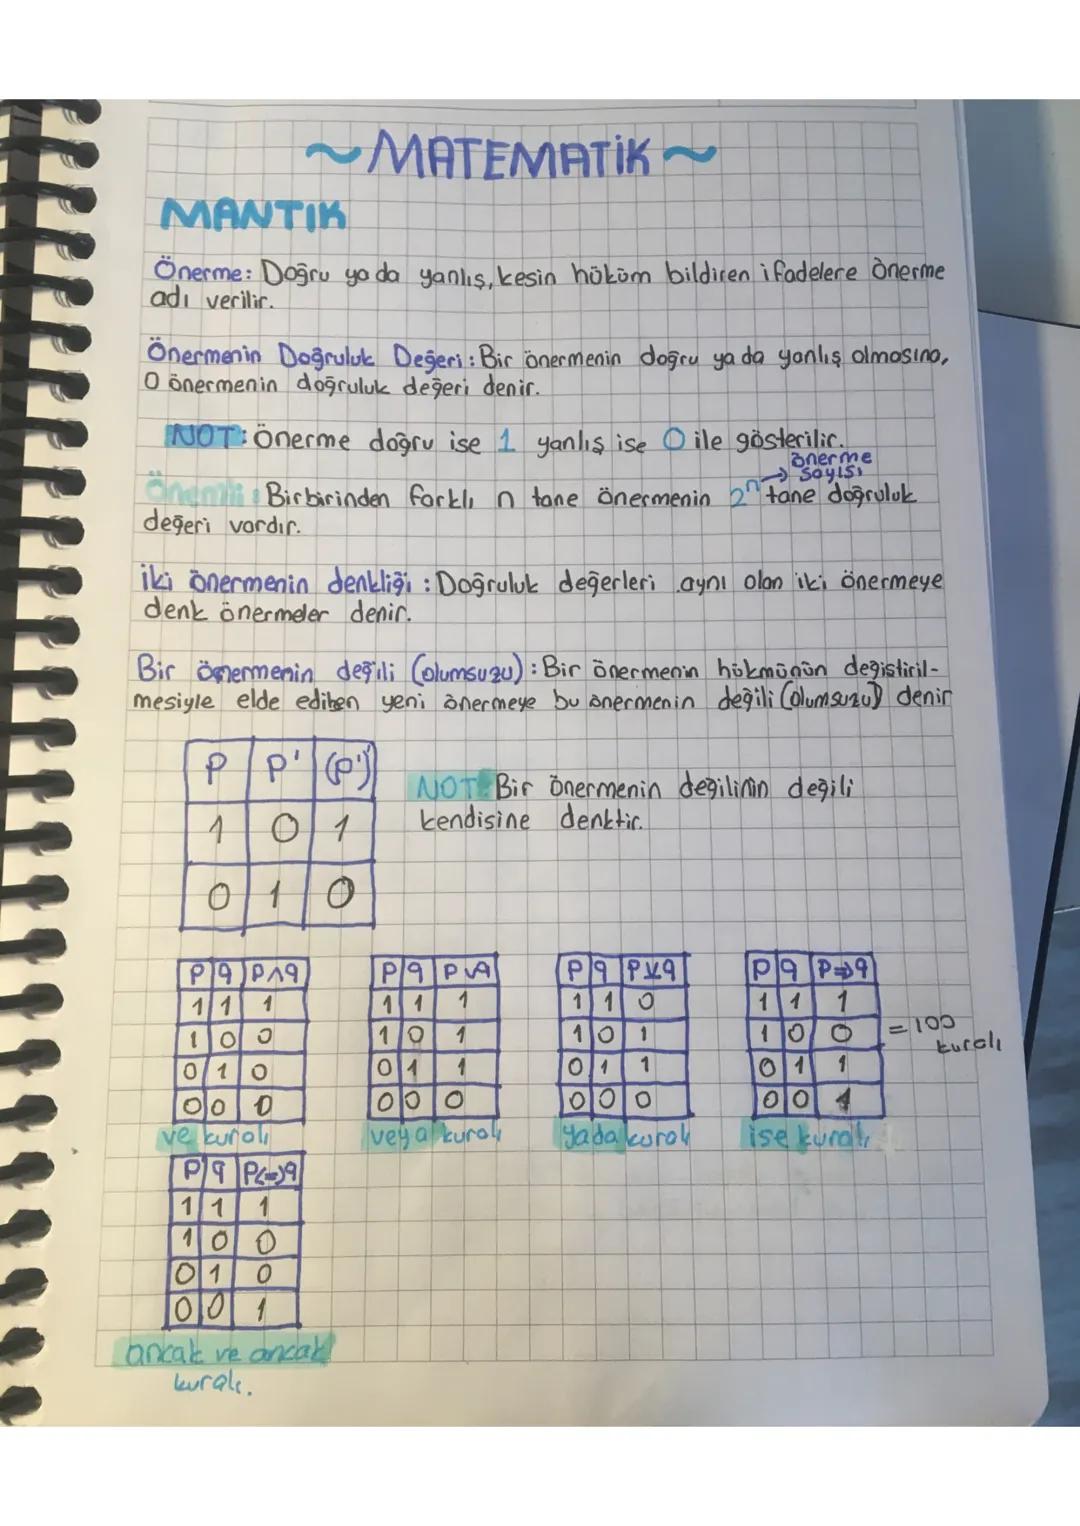 ~MATEMATİK~
MANTIK
Önerme: Doğru ya da yanlış, kesin hüküm bildiren ifadelere önerme
adı verilir.
Önermenin Doğruluk Değeri: Bir önermenin doğru ya da yanlış olmasına,
O önermenin doğruluk değeri denir.
NOT: Önerme doğru ise 1 yanlış ise 0 ile gösterilir.
Önemli: Birbirinden farklı n tane önermenin 2ⁿ → önerme sayısı tane doğruluk
değeri vardır.
iki önermenin denkliği: Doğruluk değerleri aynı olan iki önermeye
denk önermeler denir.
Bir önermenin değili (olumsuzu): Bir önermenin hükmünün değiştiril-
mesiyle elde edilen yeni önermeye bu önermenin değili (olumsuzu) denir
P P' (P')'
1 0 1
0 1 0
NOT: Bir önermenin değilinin değili
kendisine denktir.
P q P∧q
1 1 1
1 0 0
0 1 0
0 0 0
ve kuralı
P q P∨q
1 1 1
1 0 1
0 1 1
0 0 0
veya kuralı
P q P⊻q
1 1 0
1 0 1
0 1 1
0 0 0
yada kuralı
P q P⇒q
1 1 1
1 0 0
0 1 1
0 0 1
= 100
kuralı
ise kuralı
P q P<=>q
1 1 1
1 0 0
0 1 0
0 0 1
ancak ve ancak
kuralı.